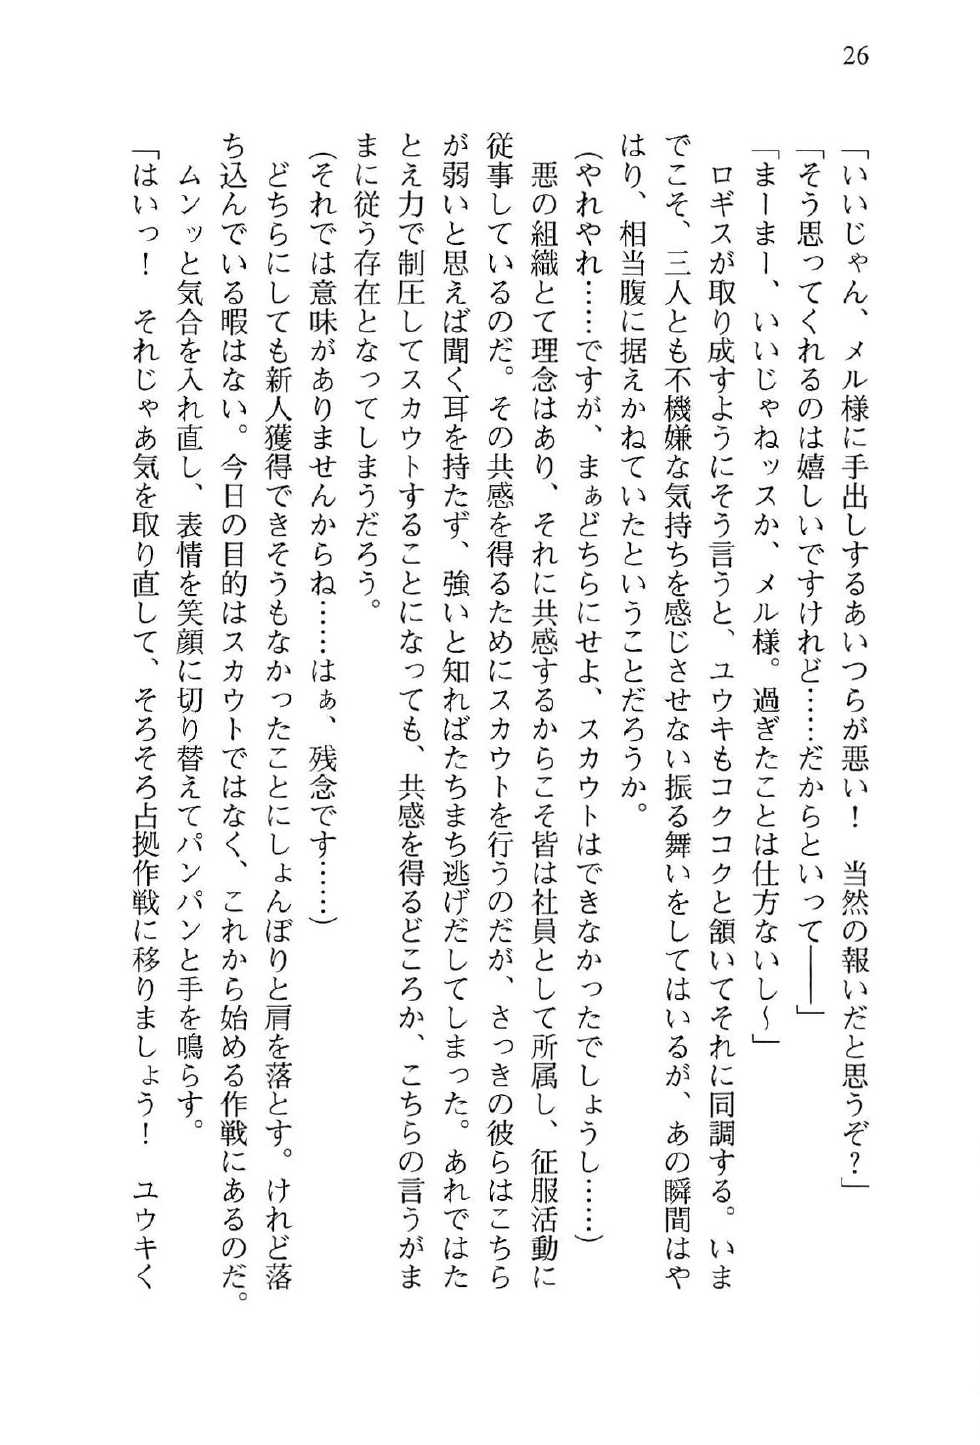 26
「いいじゃん、メル様に手出しするあいつらが悪い！　当然の報いだと思うぞ？」
「そう思ってくれるのは嬉しいですけれど……だからといって――」
「まーまー、いいじゃねッスか、メル様。過ぎたことは仕方ないし～」
　ロギスが取り成すようにそう言うと、ユウキもコクコクと頷いてそれに同調する。いま
でこそ、三人とも不機嫌な気持ちを感じさせない振る舞いをしてはいるが、あの瞬間はや
はり、相当腹に据えかねていたということだろうか。
（やれやれ……ですが、まぁどちらにせよ、スカウトはできなかったでしょうし……）
　悪の組織とて理念はあり、それに共感するからこそ皆は社員として所属し、征服活動に
従事しているのだ。その共感を得るためにスカウトを行うのだが、さっきの彼らはこちら
が弱いと思えば聞く耳を持たず、強いと知ればたちまち逃げだしてしまった。あれではた
とえ力で制圧してスカウトすることになっても、共感を得るどころか、こちらの言うがま
まに従う存在となってしまうだろう。
（それでは意味がありませんからね……はぁ、残念です……）
　どちらにしても新人獲得できそうもなかったことにしょんぼりと肩を落とす。けれど落
ち込んでいる暇はない。今日の目的はスカウトではなく、これから始める作戦にあるのだ。
　ムンッと気合を入れ直し、表情を笑顔に切り替えてパンパンと手を鳴らす。
「はいっ！　それじゃあ気を取り直して、そろそろ占拠作戦に移りましょう！　ユウキく